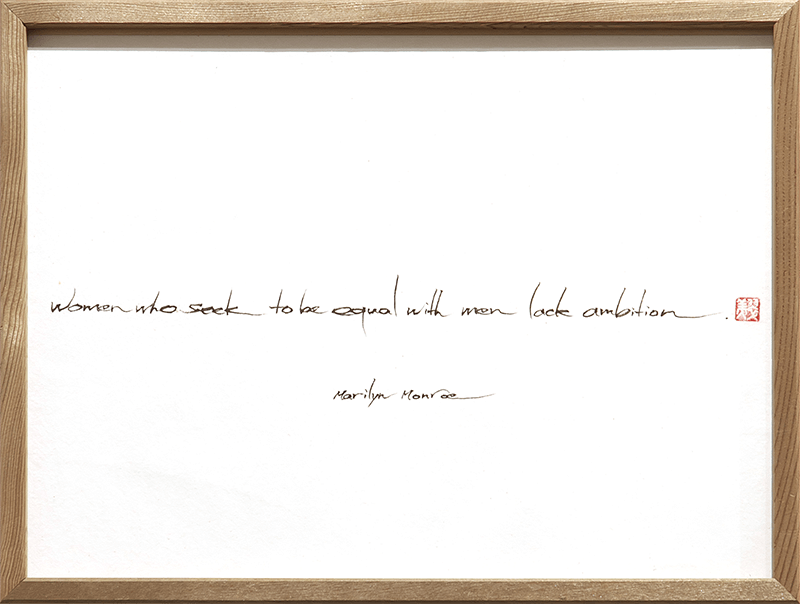 women who seek to be equal with men lack ambition.
Marilyn Monroe